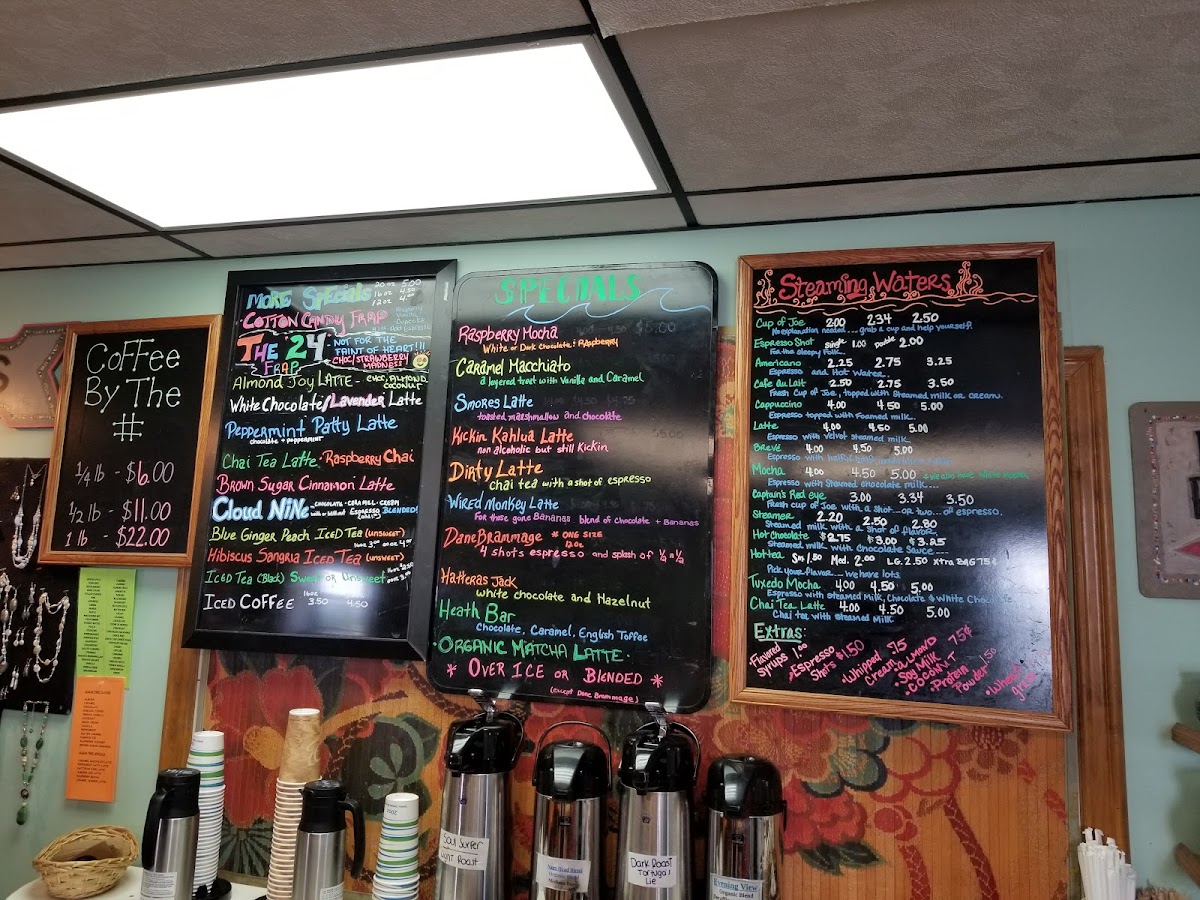 Coffee
By The
#
1/4 lb - $6.00
1/2 lb - $11.00
1 lb - $22.00
More Specials
20 oz 5.00
16 oz 4.50
12 oz 4.00
Cotton Candy Frap
The "24"
Frap
Not for the
faint of heart!!!
Choc/Strawberry
Madness
Almond Joy Latte - Choc, Almond,
Coconut
White Chocolate/Lavender Latte
Peppermint Patty Latte
chocolate + peppermint
Chai Tea Latte · Raspberry Chai
Brown Sugar Cinnamon Latte
Cloud Nine
Chocolate · Caramel · Cream
Espresso Blended!
Blue Ginger Peach Iced Tea (unsweet)
Hibiscus Sangria Iced Tea (unsweet)
Iced Tea (Black) Sweet or Unsweet
Iced Coffee 16oz 3.50 4.50
Specials
Raspberry Mocha $5.00
White or Dark Chocolate & Raspberry
Caramel Macchiato
a layered treat with Vanilla and Caramel
Smores Latte
toasted marshmallow and chocolate
Kickin Kahlua Latte
non alcoholic but still Kickin
Dirty Latte
chai tea with a shot of espresso
Wired Monkey Latte
For those gone Bananas blend of chocolate + Bananas
DaneBrammage * one size
12oz
4 shots espresso and splash of 1/2 n 1/2
Hatteras Jack
white chocolate and Hazelnut
Heath Bar
Chocolate, Caramel, English Toffee
·Organic Matcha Latte·
* Over Ice or Blended *
(Except Dane Brammage)
Steaming Waters
Cup of Joe 2.00 2.34 2.50
No explanation needed.... grab a cup and help yourself.
Espresso Shot Single 1.00 Double 2.00
For the sleepy folk...
Americano 2.25 2.75 3.25
Espresso and Hot Water..
Cafe au Lait 2.50 2.75 3.50
Fresh Cup of Joe, topped with Steamed milk or cream.
Cappuccino 4.00 4.50 5.00
Espresso topped with Foamed milk..
Latte 4.00 4.50 5.00
Espresso with velvet steamed milk
Brevé 4.00 4.50 5.00
Mocha 4.00 4.50 5.00
Espresso with Steamed chocolate milk....
Captain's Red eye 3.00 3.34 3.50
Fresh cup of Joe with a shot-or two... of espresso.
Steamer 2.20 2.50 2.80
Steamed milk with a shot of flavor.
Hot Chocolate $2.75 $3.00 $3.25
Steamed milk with Chocolate Sauce....
Hot tea Sm 1.50 Med. 2.00 LG. 2.50 Xtra BAG 75¢
Pick your flavor... we have lots
Tuxedo Mocha 4.00 4.50 5.00
Espresso with steamed Milk, Chocolate & White Chocolate
Chai Tea Latte 4.00 4.50 5.00
Chai tea with Steamed milk
Extras:
·Flavored
Syrups 1.00
·Espresso
Shots $1.50
·Whipped 75
Cream
·Almond 75¢
Soy Milk
·Coconut
·Protein 1.50
Powder
Soul Surfer
Light Roast
Dark Roast
Tortuga's
Lie
Evening View
Organic Blend